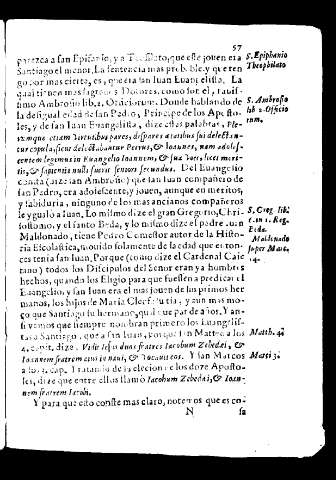 57
parezca a san Epifanio, y a Teofilato, que este joven era
Santiago el menor. La sentencia mas probable, y que ten-
go por mas cierta, es, que era san Iuan Euangelista. La
qual tienen mas sagrados Dotores, como son el
simo Ambrosio lib. 2. Oficiorum. Donde hablando de
la desigual edad de san Pedro, Principe de los Aposto-
les, y de san Iuan Euangelista, dize estas palabras, Ple-
rumque etiam virtutibus pares, dispares ætatibus sui delectan-
tur copula, sicut delectabantur Petrus, & Ioannes, nam adoles-
centem legimus in Euangelio Ioannem, & sua voce, licet meri-
tis, & sapientia nulli fuerit seniorum secundus. Del Euangelio
consta (dize san Ambrosio) que san Iuan compañero de
san Pedro, era adolescente, y joven, aunque en meritos,
y sabiduria, ninguno de los mas ancianos compañeros
le ygualò a Iuan. Lo mismo dize el gran Gregorio, Chri-
sostomo, y el santo Beda, y lo mismo dize el padre Iuan
Maldonado, tiene Pedro Comestor autor de la Histo-
ria Escolastica, mouido solamente de la edad que enton-
ces tenia san Iuan. Porque (como dize el Cardenal Caie-
tano) todos los Discipulos del Señor eran ya hombres
hechos, quando los Eligiò para que fuessen a predicar el
Euangelio, y san Iuan era el mas joven de los primos her
manos, los hijos de Maria Cleofæ su tia, y aun mas mo-
ço que Santiago su hermano, que de par de años. Y an-
si vemos que siempre nombran primero los Euangelis-
tas a Santiago, que a san Iuan, porque san Matteo a los
4. capit. dize. Vidit Iesus duos fratres Iacobum Zebedæi, &
Ioannem fratrem eius in naui, & vocauit eos. Y san Marcos
a los 3. cap. Tratando de la eleccion de los doze Aposto-
les, dize que entre ellos llamò Iacobum Zebedæi, & Ioan-
nem fratrem Iacobi.
Y para que esto conste mas claro, notemos que es co-
N sa
S. Epiphanio
Theophilato
S. Ambrosio
lib 2. Officio
rum.
S. Greg. lib.
Beda.
Maldonado
super Marc.
14.
Matth. 4.
Marci 3.